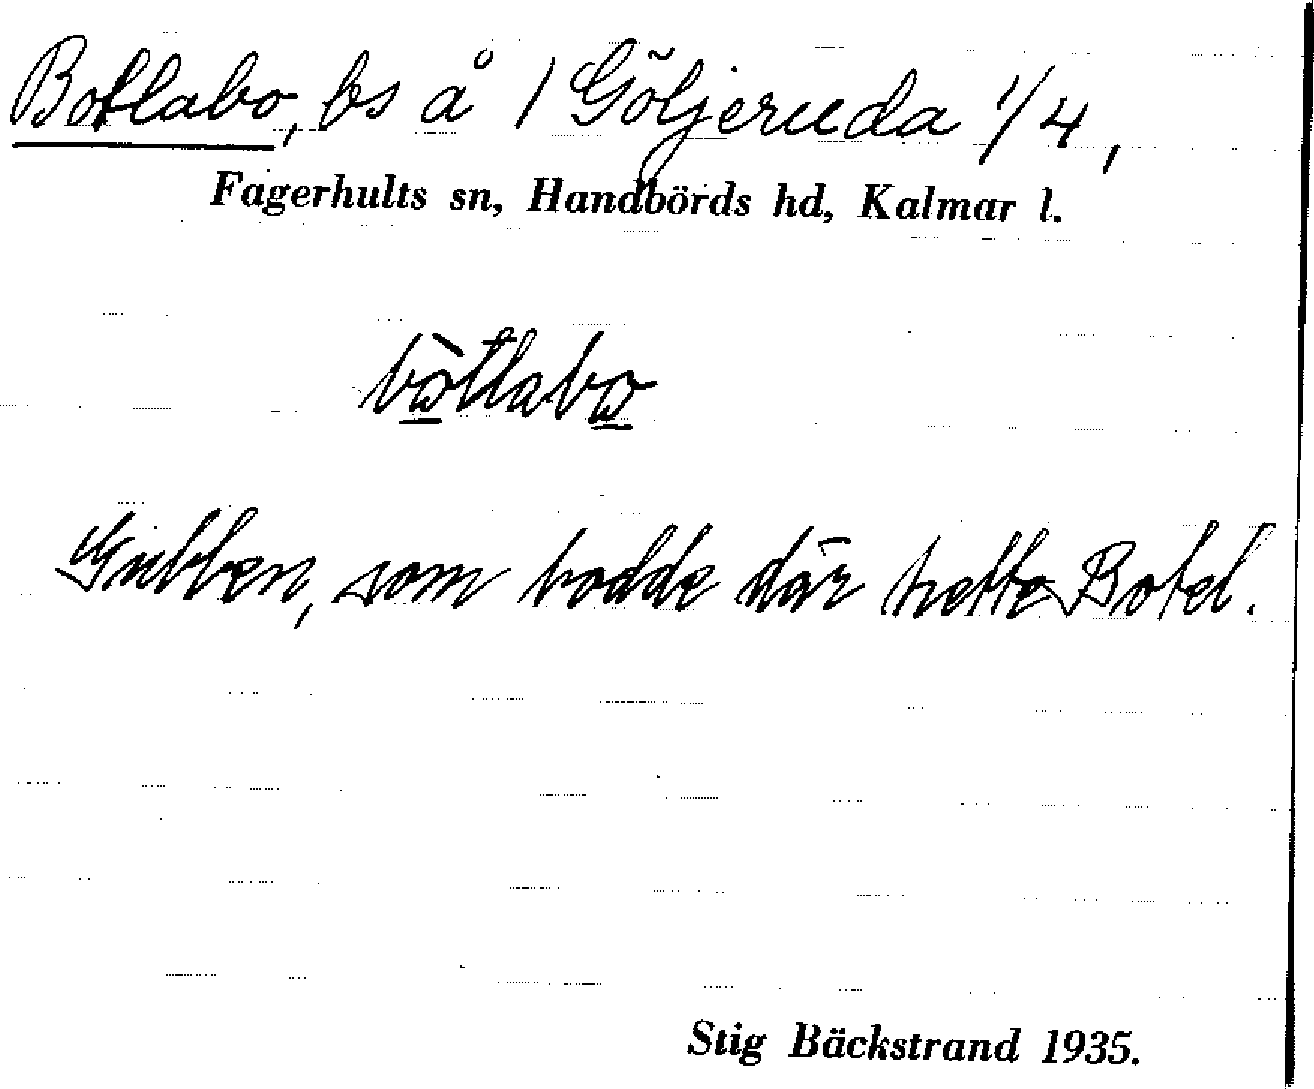 Botlabo, bs å 1 Göljeruda 1/4,
Fagerhults sn, Handbörds hd, Kalmar l.
bòtlabo
Gubben, som bodde där hette Botel.
Stig Bäckstrand 1935.